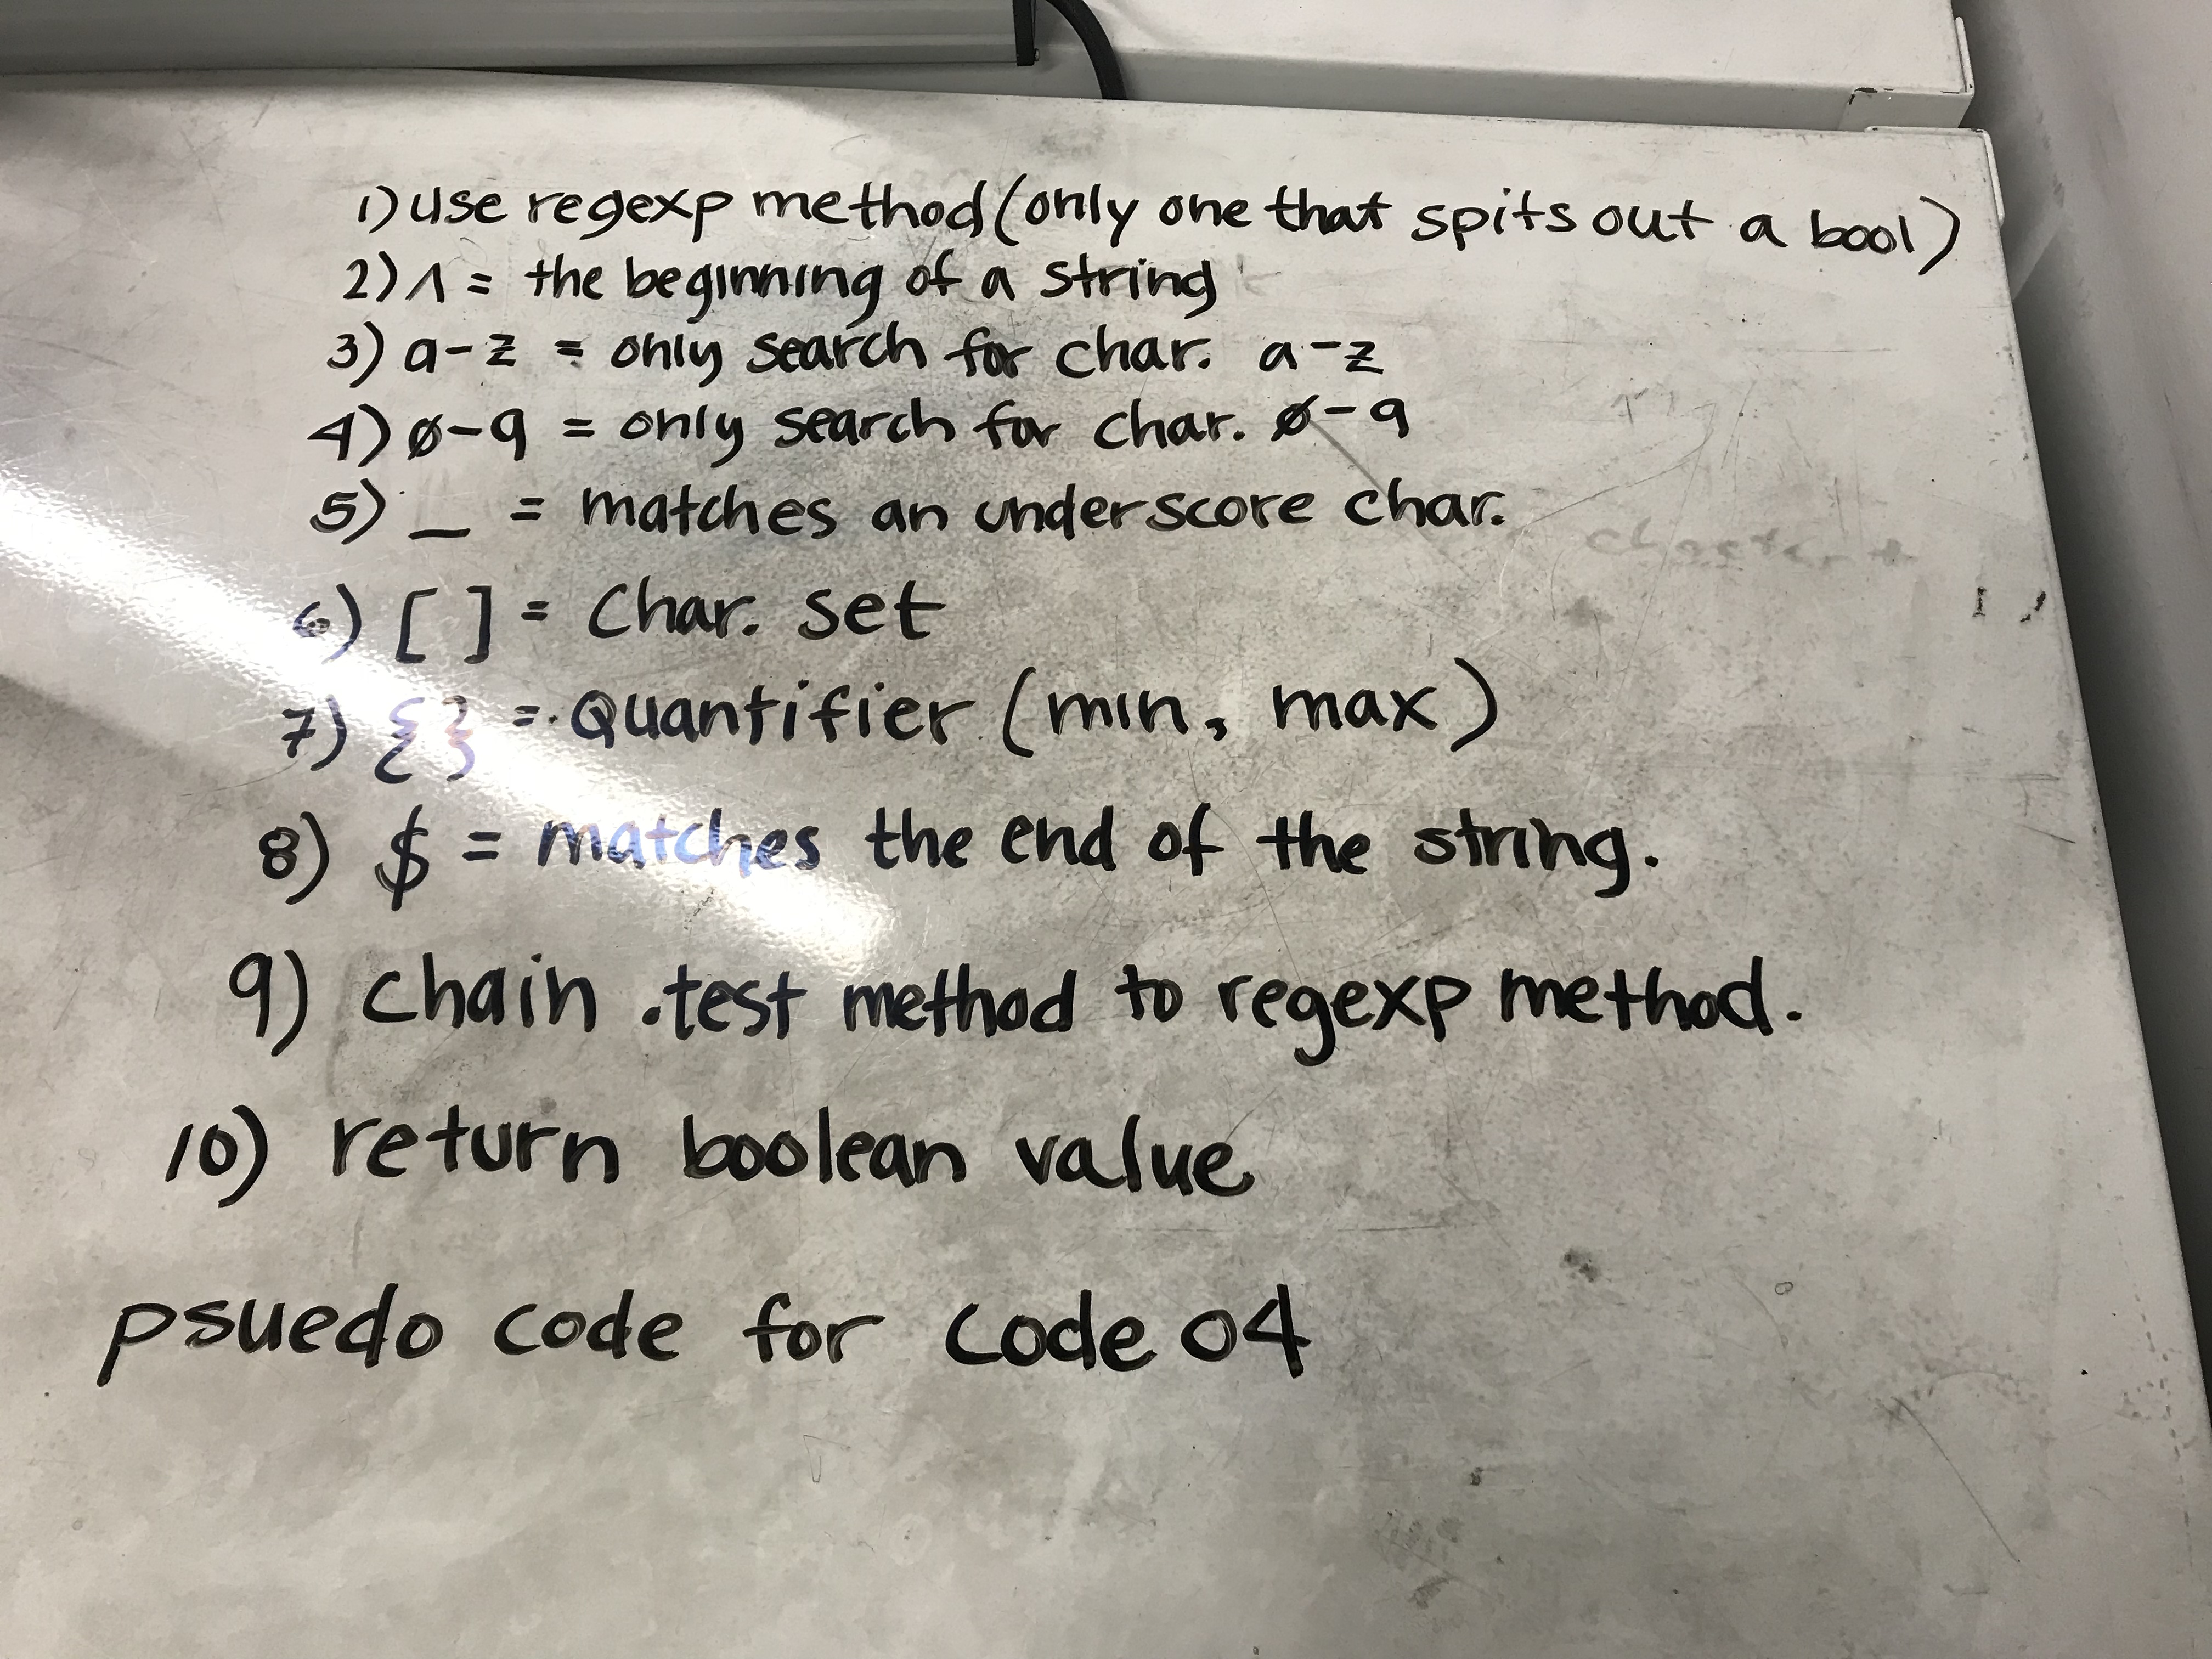 1) use regexp method (only one that spits out a bool)
2) ^ = the beginning of a string
3) a-z = only search for char. a-z
4) Ø-9 = only search for char. Ø-9
5) _ = matches an underscore char.
6) [ ] = Char. set
7) {} = Quantifier (min, max)
8) $ = matches the end of the string.
9) chain .test method to regexp method.
10) return boolean value
psuedo code for code 04